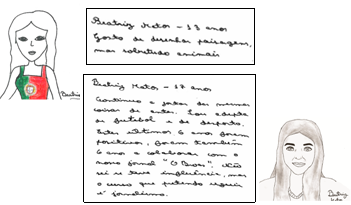 Beatriz Matos - 13 anos
Gosto de desenhar paisagens,
mas sobretudo animais
Beatriz
Beatriz Matos - 17 anos
Continuo a gostar das mesmas
coisas de antes. Sou adepta
de futebol e de desporto.
Estes últimos 6 anos foram
positivos, foram também
6 anos a colaborar com o
nosso jornal "O Búzios". Não
sei se teve influência, mas
o curso que pretendo seguir
é jornalismo.
Beatriz